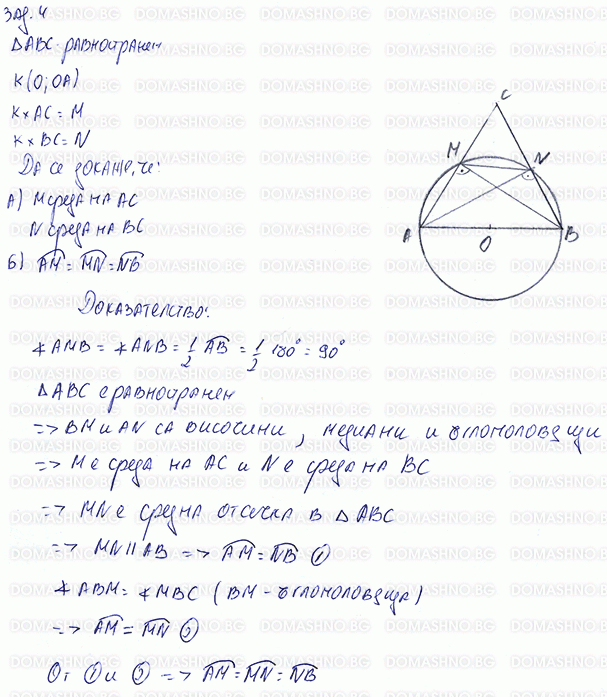 Зад. 4
ΔABC равностранен
K(O; OA)
K×AC = M
K×BC = N
Да се докаже, че:
А) M среда на AC
N среда на BC
Б) ⌒AM = ⌒MN = ⌒NB
C
M
N
A
O
B
Доказателство:
∢AMB = ∢ANB = 1/2 ⌒AB = 1/2 180° = 90°
ΔABC е равностранен
=> BM и AN са височини, медиани и ъглополовящи
=> M е среда на AC и N е среда на BC
=> MN е средна отсечка в ΔABC
=> MN || AB => ⌒AM = ⌒NB ①
∢ABM = ∢MBC (BM - ъглополовяща)
=> ⌒AM = ⌒MN ②
От ① и ② => ⌒AM = ⌒MN = ⌒NB
DOMASHNO.BG